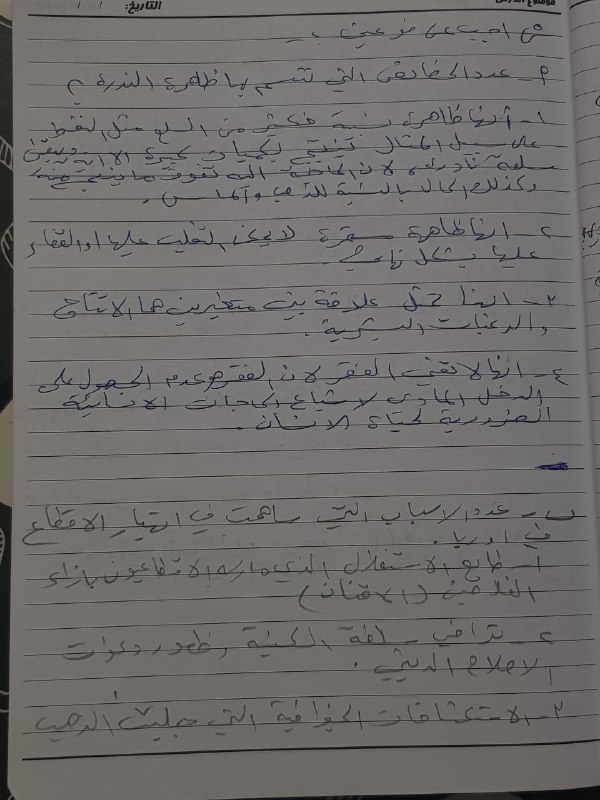 موضوع الدرس
التاريخ: / /
س/ اجب عن فرعين :-
م- عدد الخصائص التي تتسم بها ظاهرة الندرة م
١- أنها ظاهرة نسبية فكثير من السلع مثل النفط
على سبيل المثال تنتج بكميات كبيرة الا انه يبقى
سلعة نادرة، لان الحاجة اليه تفوق ما ينتج منه
وكذلك الحال بالنسبة للذهب والماس.
٢- انها ظاهرة مستمرة لا يمكن التغلب عليها او القضاء
عليها بشكل نهائي.
٣- انها تمثل علاقة بين متغيرين هما الانتاج
والرغبات البشرية.
٤- انها لا تعني الفقر لان الفقر هو عدم الحصول على
الدخل المادي لاشباع الحاجات الانسانية
الضرورية لحياة الانسان.
ب- عدد الاسباب التي ساهمت في انهيار الاقطاع
في اوربا.
١- طابع الاستغلال الذي مارسه الاقطاعيون بازاء
الفلاحين (الاقنان)
٢- تراخي سلطة الكنيسة وظهور دعوات
الاصلاح الديني.
٣- الاستكشافات الجغرافية التي جلبت الذهب